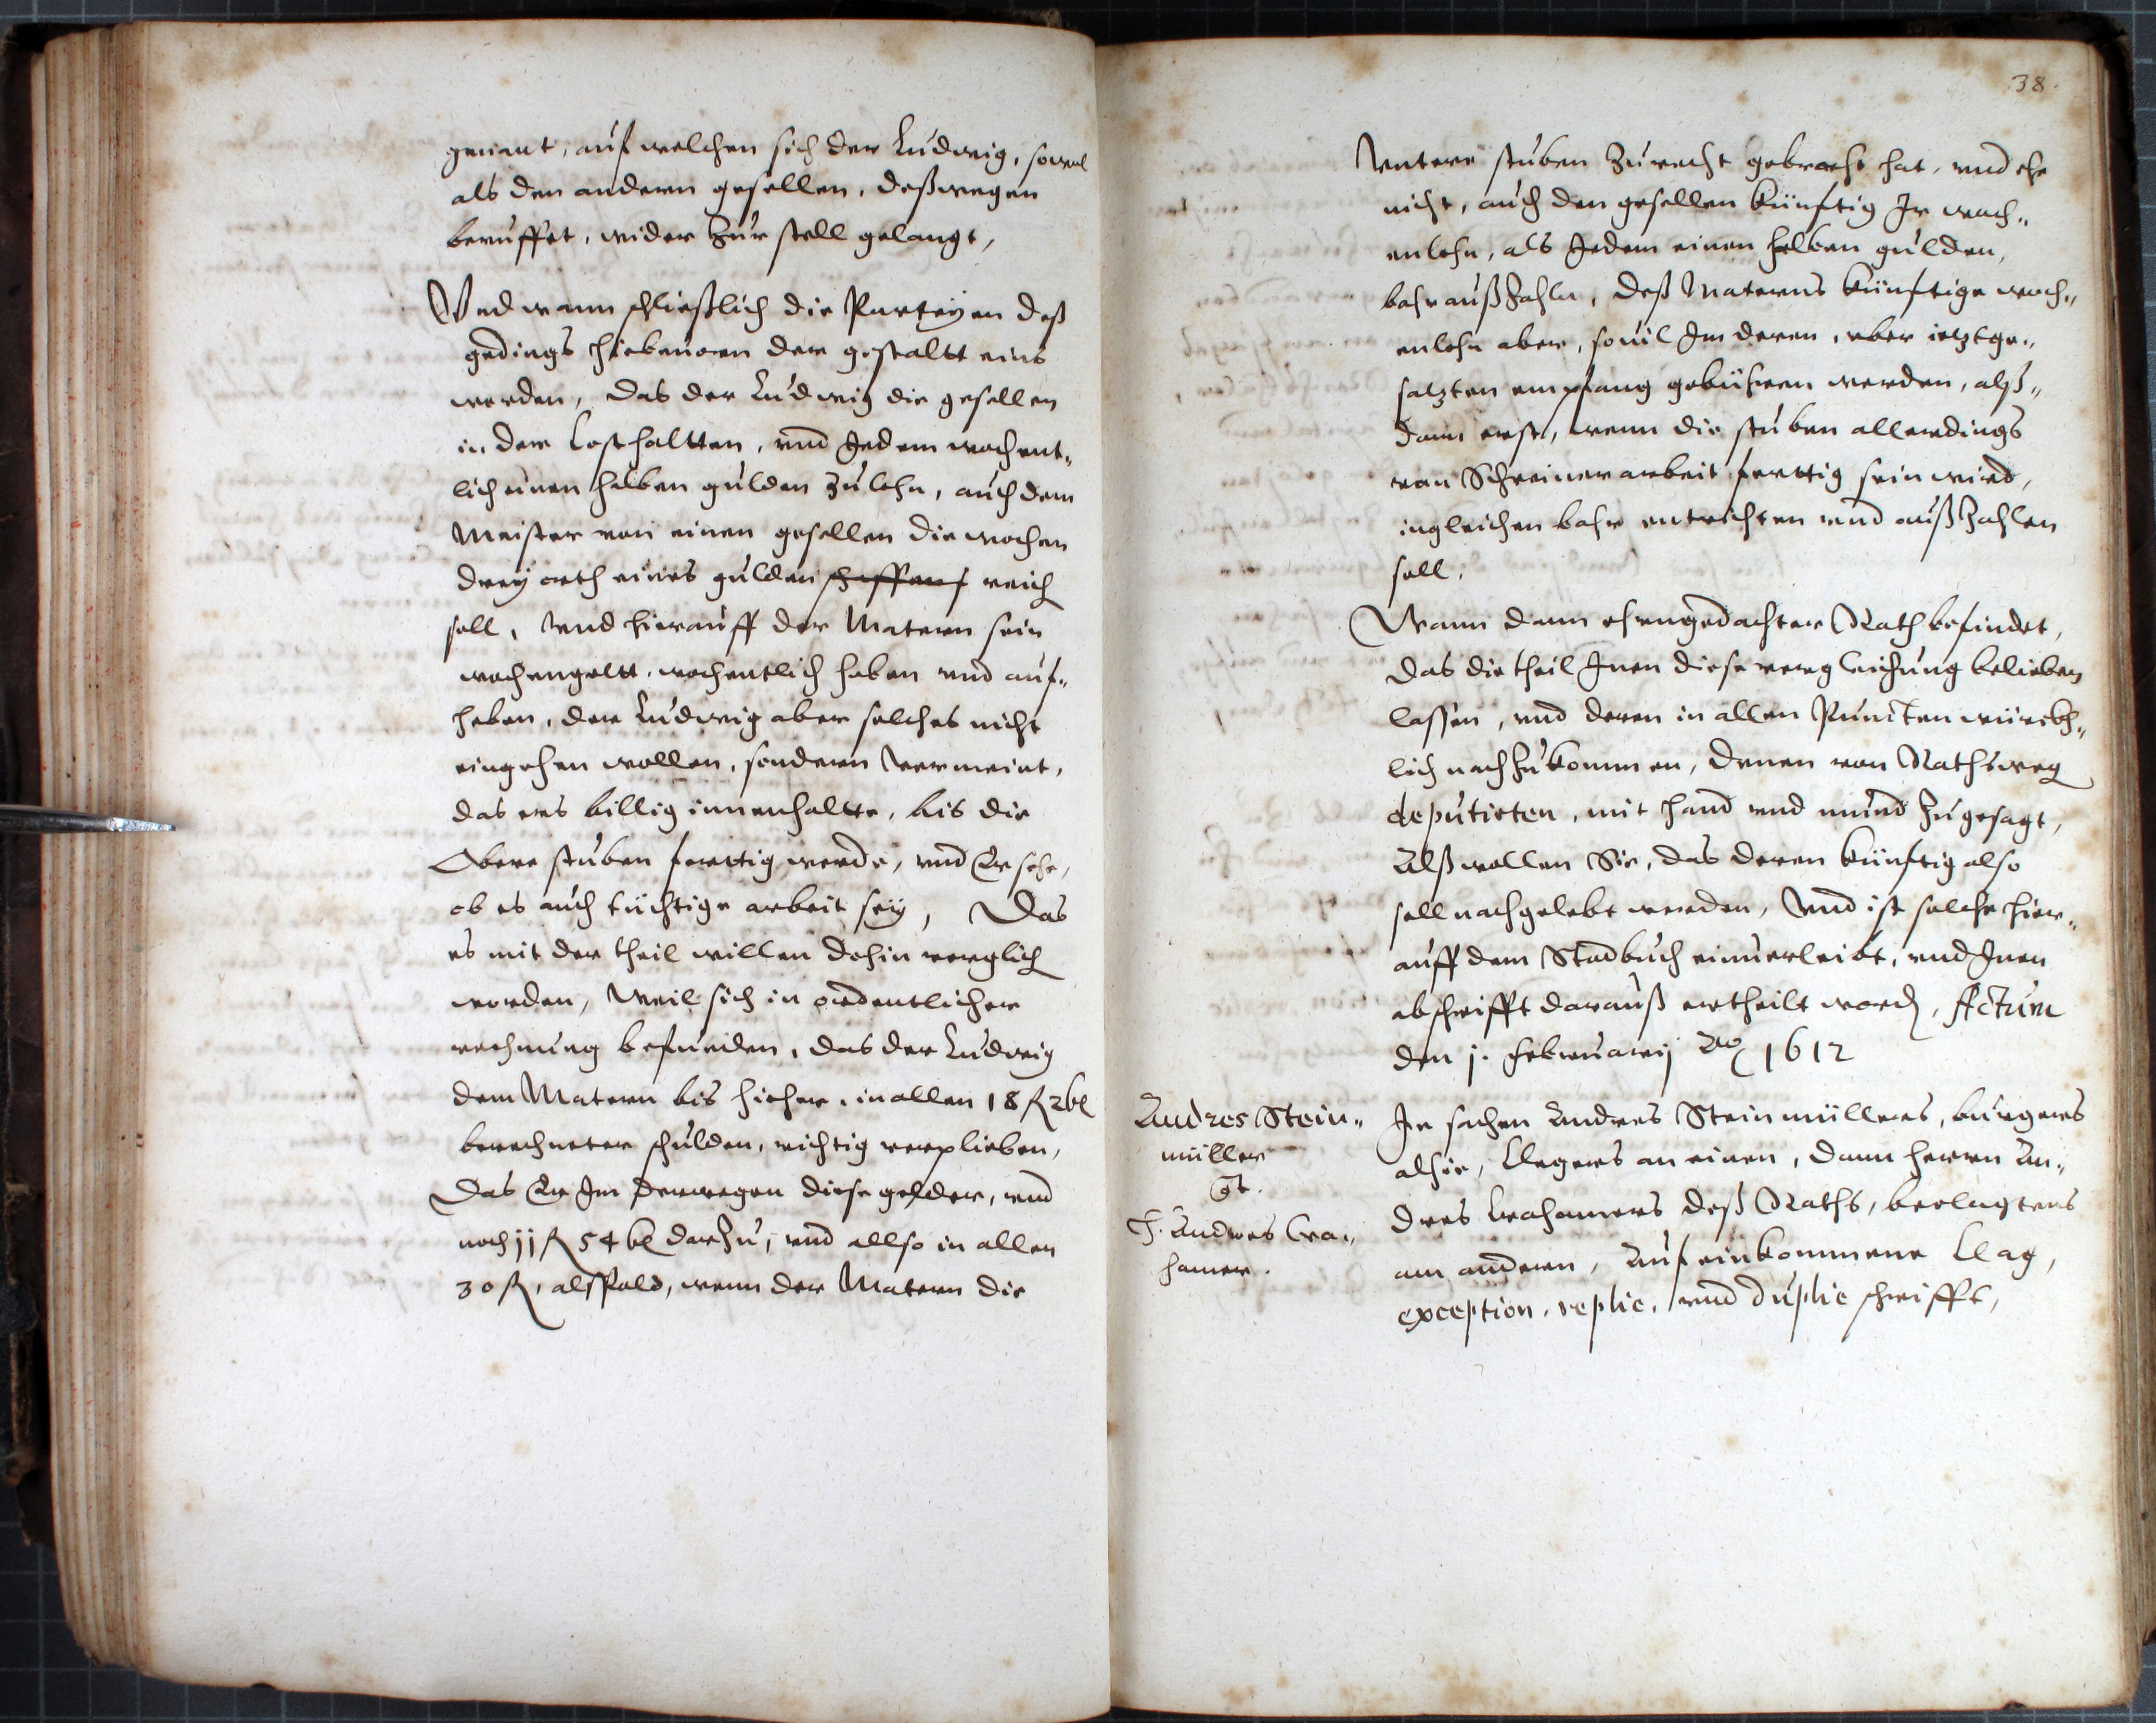 genant, auf welchen sich der Ludwig, sowol
als den andern gesellen, deßwegen
beruffet, wider zur stell gelangt,
Vnd wann schließlich die Parteyen deß
gedings hiebeuorn der gestaltt eins
worden, das der Ludwig die gesellen
in der Cost haltten, vnd Jedem wochent„
lich einen halben gulden zu lohn, auch dem
Meister von einen gesellen die wochen
drey orth eines gulden reich
soll, Vnd hierauff der Matern sein
wochengeltt wochentlich haben vnd auf„
heben, der Ludwig aber solches nicht
eingehen wollen, sondern Vermeint,
das ers billig innenhaltte, bis die
Obere stuben ferttig werde, vnd Er sehe,
ob es auch tüchtige arbeit sey, Das
es mit der theil willen dohin verglich
worden, Weil sich in ordentlicher
rechnung befunden, das der Ludwig
dem Matern bis hieher, in allen 18 fl 26
berechneter schulden, richtig verplieben,
Das Er Jm derwegen diese gelder, vnd
noch jj fl 54 darzu, vnd allso in allen
30 fl, alspald, wenn der Matern die
38.
Vntere stuben zurecht gebracht hat, vnd ehe
nicht, auch den gesellen künftig Jr woch„
enlohn, als Jedem einen halben gulden,
bahr außzahln, deß Materns künftige woch„
enlohn aber, souil Jm deren, vber ietztge„
satzten empfang gebühren werden, alß„
dann erst, wenn die stuben allerdings
von Schreinerarbeit ferttig sein wird,
ingleichen bahr entrichten vnd außzahlen
soll.
Wann dann ehrngedachter Rath befindet,
das die theil Jnen diese vergleichung belieben
lassen, vnd deren in allen Puncten würckh„
lich nachzukommen, denen von Rathsweg
deputirten, mit hand vnd mund zugesagt,
Alß wollen Sie, das deren künftig also
soll nachgelebt werden, Vnd ist solche hier„
auff dem Stadbuch einuerleibt, vnd Jnen
abschrifft darauß ertheilt word, Actum
den j. Februarij Ao 1612
Andres Stein„
müller
Ct.
H. Andres Cra„
hamer.
Jn sachen Andres Steinmüllers, burgers
alhie, Clegers an einen, dann herrn An„
dres Crahamers deß Raths, beclagtens
am andern, Auf einkommene Clag,
exception, replic, vnd duplic schrifft,